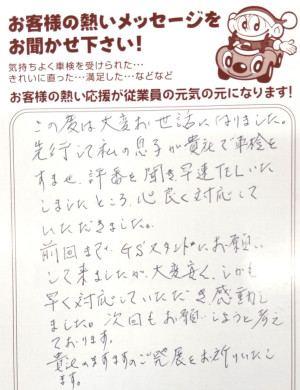 お客様の熱いメッセージを
お聞かせ下さい!
気持ちよく車検を受けられた…
きれいに直った…満足した…などなど
お客様の熱い応援が従業員の元気の元になります!
この度は大変お世話になりました。
先行して私の息子が貴社で車検を
すませ、評判を聞き早速伝いた
しましたところ、心良く対応して
いただきました。
前回まで、GSスタンドにお願い
して来ましたが、大変安く、しかも
早く対応していただき感動し
ました。次回もお願いしようと考え
ております。
貴社のますますのご発展をお祈りいたし
ます。